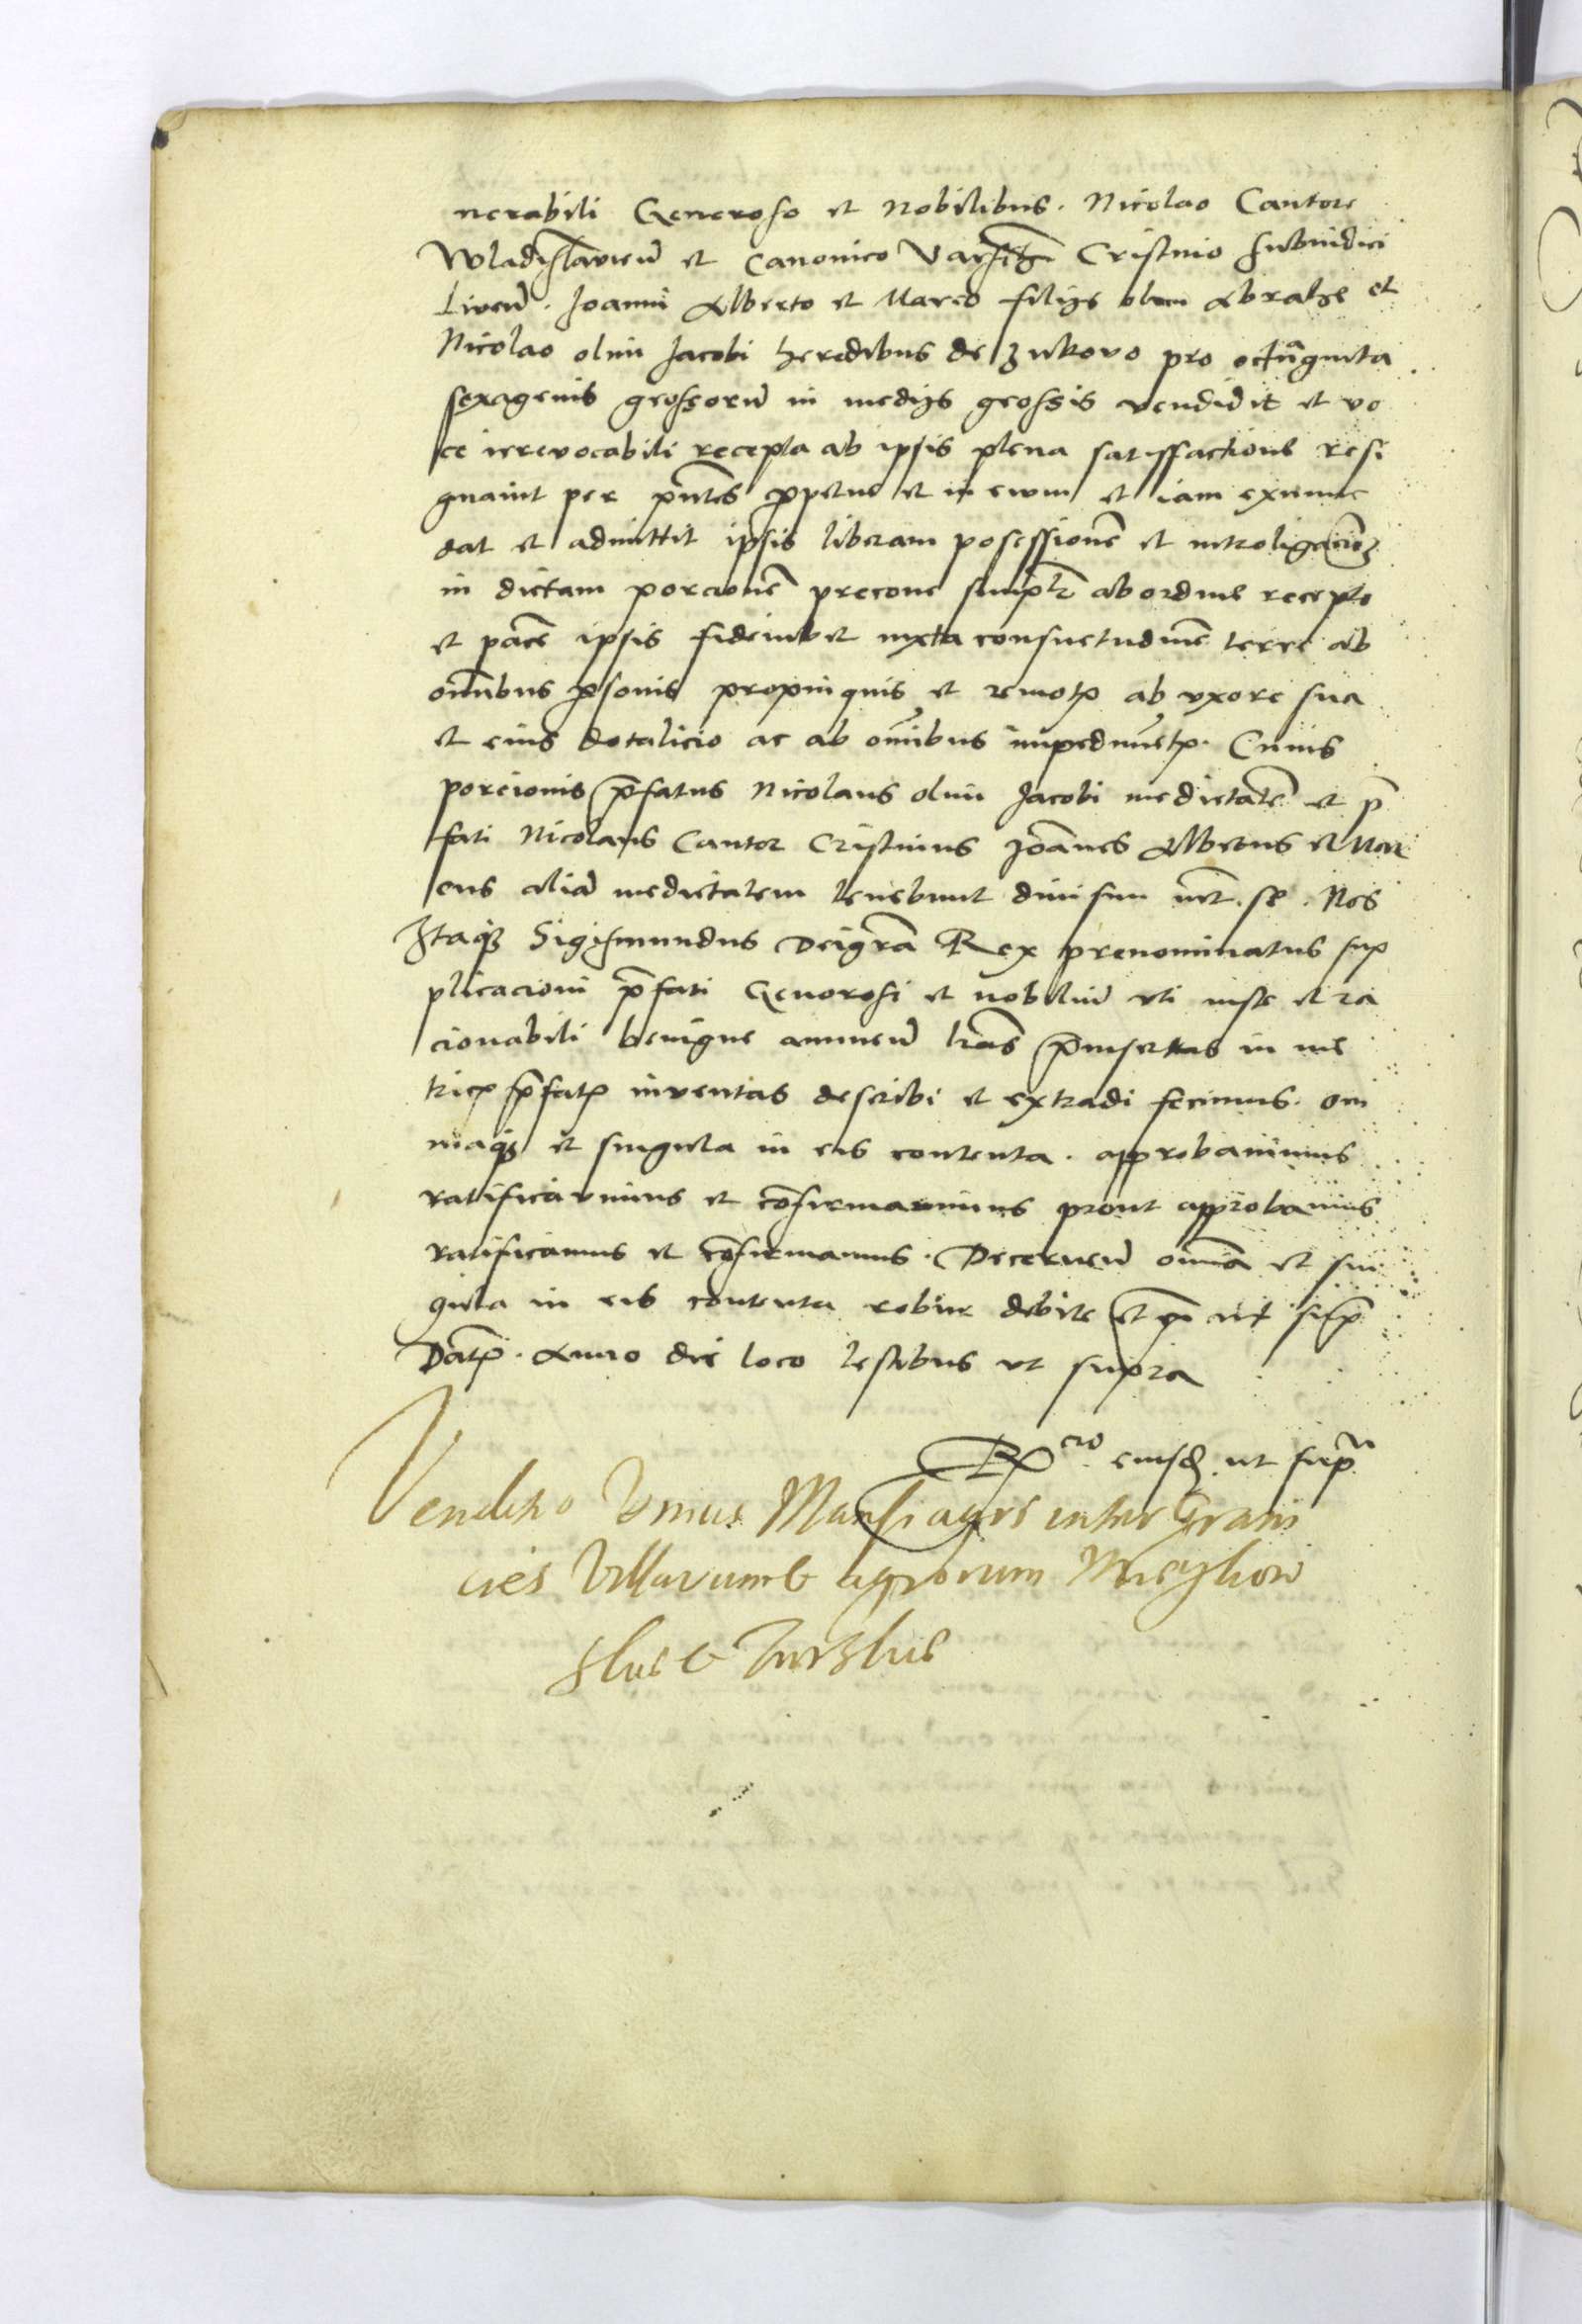 nerabili Generoso et Nobilibus. Nicolao Cantore
Wladislavien̄ et Canonico Cristino subiudici
Liven̄. Joanni Alberto et Marco filijs olim Abrahe et
Nicolao olim Jacobi heredibus de Zukovo pro octuaginta
sexagenis grossorū in medijs grossis vendidit et vo
ce irrevocabili recepta ab ipsis plena satisffactione resi
gnavit per p̄ntes p̄petue et in evum et iam exnunc
dat et admittit ipsis liberam posessionē et introligacionē
in dictam porcionē precone simpl̄r ab ordine recepto
et pacē ipsis fideiubet iuxta consuetudinē terre ab
omībus p̄sonis propinquis et remotꝭ ab uxore sua
et eius dotalicio ac ab omībus impedimētꝭ. Cuius
porcionis p̄fatus Nicolaus olim Jacobi medietatē et p̄
fati Nicolaus Cantor Cristinus Joānes Albertus et Mar
cus aliā medietatem tenebunt divisim int̄. se. Nos
Itaqꝫ Sigismundus Deigr̄a Rex prenominatus sup
plicacioni p̄fati Generosi et nobiliū uti iuste et ra
cionabili benigne annuen̄ l̄ras p̄insertas in me
tricꝭ p̄fatꝭ inventas describi et extradi fecimus. om
niaqꝫ et singula in eis contenta. approbavimus
ratificavimus et cōfirmavimus prout approbamus
ratificamus et cōfirmamus. Decernen̄ om̄ia et sin
gula in eis contenta robur debite ut sup̄
Datꝭ. Anno die loco testibus ut supra
R cio eiusd̄. ut sup̄ᵃ
Venditio Unius Mansi agri inter Grani
cies Villarum & agrorum